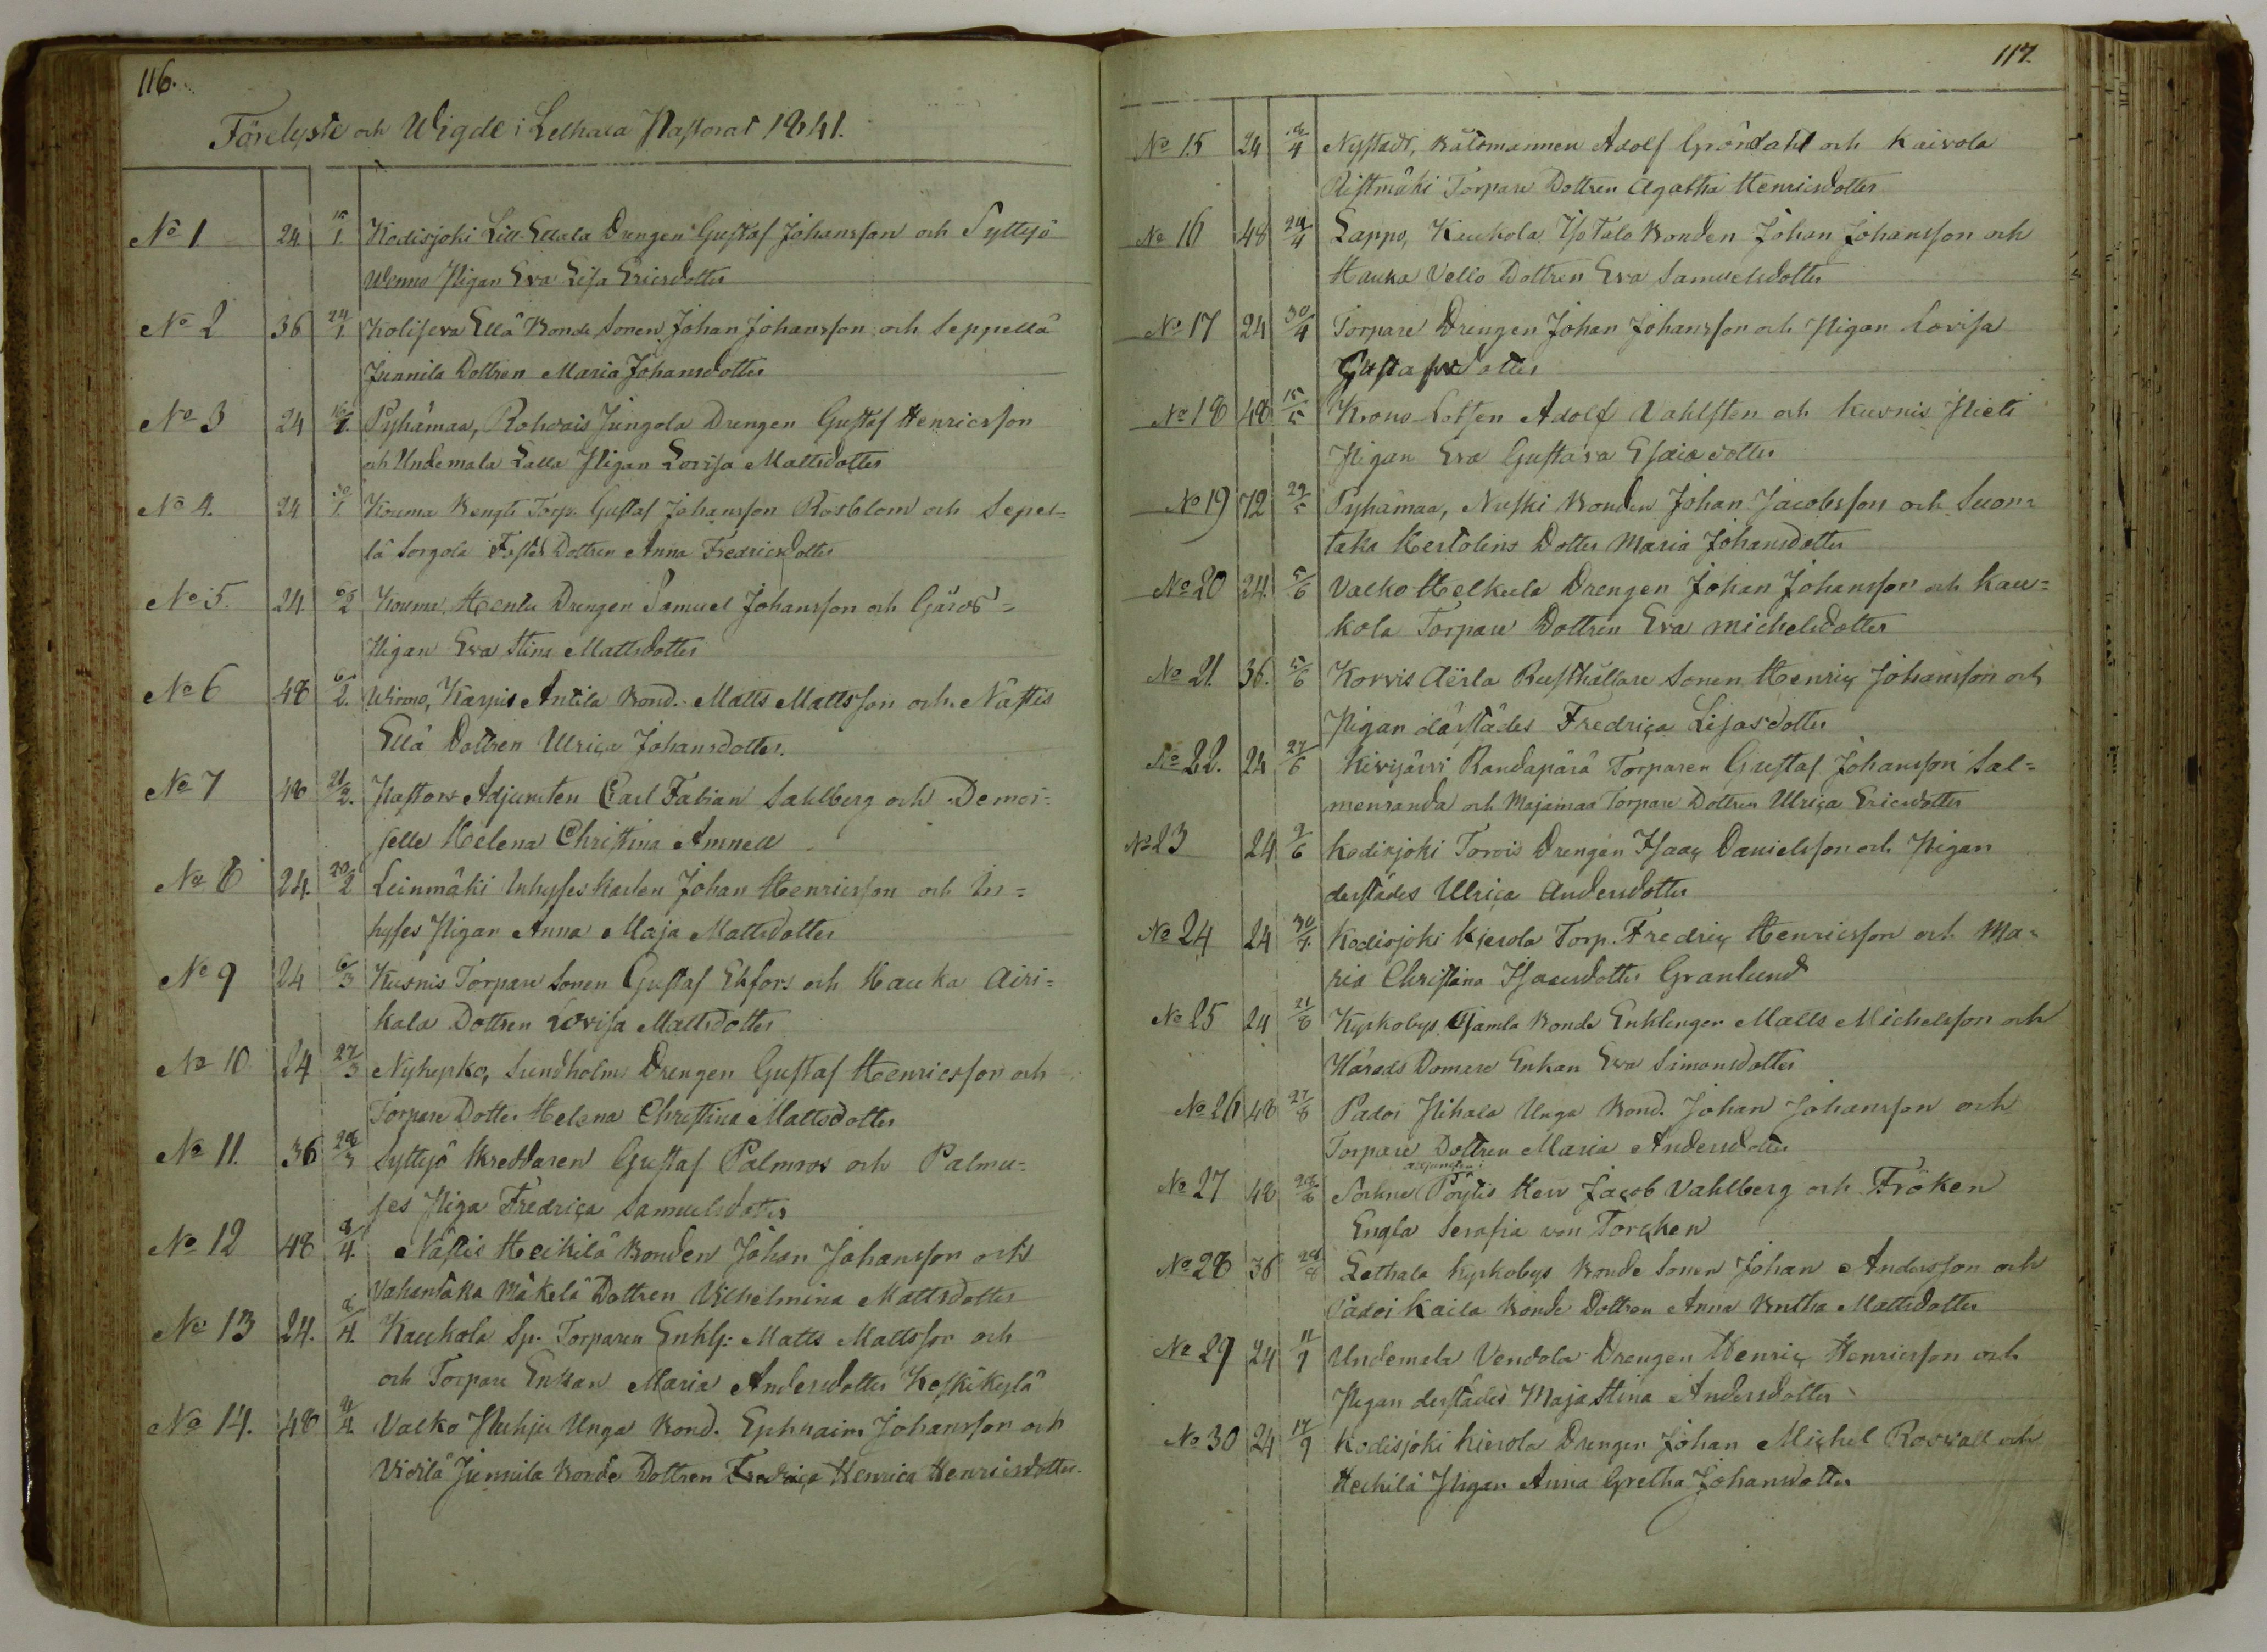 116.
Förelyste och Wigde i Lethala Pastorat 1841.
No 1 24 15/1. Kodisjoki Lill-Ellala Drengen Gustaf Johansson och Syttyö
Wenno Pigan Eva Lisa Ericsdotter
No 2 36 24/1. Koliseva Ellä Bonde Sonen Johan Johansson och Seppellä
Junnila Dottren Maria Johansdotter
No 3 24 Pyhämaa, Rohdais Jungola Drengen Gustaf Henricsson
och Undemala Lalla Pigan Lovisa Mattsdotter
No 4. 24 30/1. Kouma Bengts Torp. Gustaf Johansson Rosblom och Sepel-
lä Sorgola Dottren Anna Fredricsdotter
No 5. 24 6/2 Kouma Drengen Samuel Johansson och
Pigan Eva Stina Mattsdotter
No 6 48 6/2. Wirmo, Karjis Antila Bond. Matts Mattsson och Nästis
Ellä Dottren Ulrica Johansdotter.
No 7 48 21/2. Pastors Adjuncten Carl Fabian Sahlberg och Demoi-
selle Helena Christina Amnell
No 8 24. 20/2 Leinmäki Inhyseskarlen Johan Henricsson och In-
hyses Pigan Anna Maja Mattsdotter
No 9 24 6/3 Kusnis Torpare Sonen Gustaf Ekfors och Hauka Airi-
kala Dottren Lovisa Mattsdotter
No 10 24 27/3 Nykyrko, Sundholms Drengen Gustaf Henricsson och
Torpare Dotter Helena Christina Mattsdotter
No 11. 36 28/3 Syttyö Skreddaren Gustaf Palmros och Palmu-
ses Piga Fredrica Samuelsdotter
No 12 48 8/4. Nästis Heikilä Bonden Johan Johansson och
Vahantaka Mäkelä Dottren Vilhelmina Mattsdotter
No 13 24. 8/4. Kaukola Sp. Torparen Enkl. Matts Mattsson och
och Torpare Enkan Maria Andersdotter Keskikylä
No 14. 48 4. Valko Puhju Unga Bond. Ephraim Johansson och
Vidilä Junnila Bonde Dottren Fredrica Henrica Henricsdotter.
117.
No 15 24 Nystadt, Båtsmannen Adolf Gröndahl och Kaivola
Ristmäki Torpare Dottren Agatha Henricsdotter
No 16 48 24/4 Lappo, Kaukola, Isotalo Bonden Johan Johansson och
Hauka Vello Dottren Eva Samuelsdotter
No 17 24 30/4 Torpare Drengen Johan Johansson och Pigan Lovisa
Gustafsdotter
No 18 48 15/5 Krono Lotsen Adolf Vahlsten och Kusnis Pieti
Pigan Eva Gustava Esaiasdotter
No 19 72 29/5 Pyhämaa, Nuski Bonden Johan Jacobsson och Suon-
taka Kertolins Dotter Maria Johansdotter
No 20 24. 5/6 Valko Helkula Drengen Johan Johansson och Kau-
kola Torpare Dottren Eva Michelsdotter
No 21. 36. 5/6 Korvis Aërla Rusthållare Sonen Henric Johansson och
Pigan därstädes Fredrica Lisasdotter
No 22. 24 27/6 Kivijärvi Randapärä Torparen Gustaf Johansson Sal-
menranda och Majamaa Torpare Dottren Ulrica Ericsdotter
No 23 24 9/6 Kodisjoki Torvis Drengen Isaac Danielsson och Pigan
derstädes Ulrica Andersdotter
No 24 24 30/7. Kodisjoki Kierola Torp. Fredric Henricsson och Ma-
ria Christina Isaacsdotter Granlund
No 25 24 21/8 Kyrkobys, Gamla Bonde Enklingen Matts Michelsson och
Härads Domare Enkan Eva Simonsdotter
No 26 48 27/8 Padoi Pihala Unga Bond. Johan Johansson och
Torpare Dottren Maria Andersdotter
No 27 48 28/8 Sockne Adjuncten i Pöytis Herr Jacob Vahlberg och Fröken
Engla Serafia von Torcken
No 28 36 28/8 Lethala Kyrkobys Bonde Sonen Johan Andersson och
Padoi Kaila Bonde Dottren Anna Bretha Mattsdotter
No 29 24 11/9 Undemala Vendola Drengen Henric Henricsson och
Pigan derstädes Maja Stina Andersdotter
No 30 24 17/9 Kodisjoki Kierola Drengen Johan Michel Rosvall och
Heikilä Pigan Anna Gretha Johansdotter